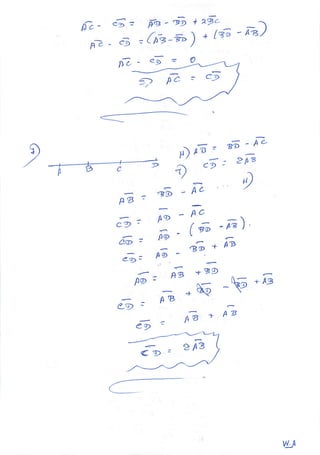 A̅C̅ - C̅D̅ = A̅B̅ - B̅D̅ + 2B̅C̅
A̅C̅ - C̅D̅ = (A̅B̅ - B̅D̅) + (B̅D̅ - A̅B̅)
A̅C̅ - C̅D̅ = 0
A̅C̅ = C̅D̅
7)
A B C D
H) A̅B̅ = B̅D̅ - A̅C̅
T) C̅D̅ = 2A̅B̅
A̅B̅ = B̅D̅ - A̅C̅ ... H)
C̅D̅ = A̅D̅ - A̅C̅
C̅D̅ = A̅D̅ - (B̅D̅ - A̅B̅)
C̅D̅ = A̅D̅ - B̅D̅ + A̅B̅
A̅D̅ = A̅B̅ + B̅D̅
C̅D̅ = A̅B̅ + B̅D̅ - B̅D̅ + A̅B̅
C̅D̅ = A̅B̅ + A̅B̅
C̅D̅ = 2A̅B̅
W.A